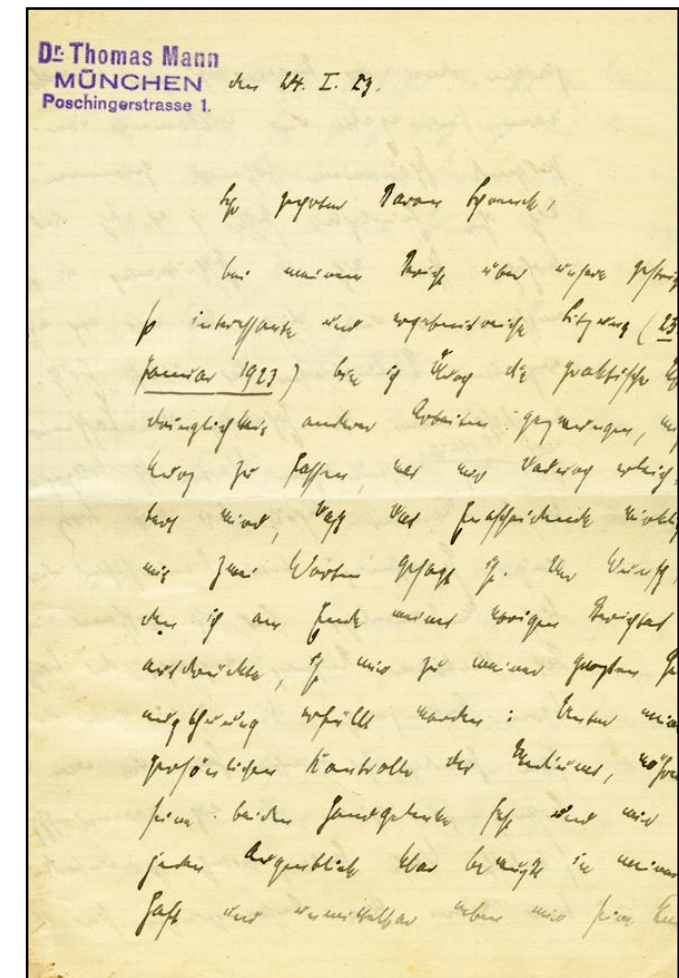 Dr. Thomas Mann
MÜNCHEN
Poschingerstrasse 1.
den 24. I. 23.
Sehr geehrter Baron Schrenck,
bei meinem Bericht über unsere gestrig
so interessante und ergebnisreiche Sitzung (23
Januar 1923) bin ich durch die praktische
dringlichkeit anderer Arbeiten gezwungen,
kurz zu fassen, was nur dadurch erleich
tert wird, daß das Entscheidende wirkli
mit zwei Worten gesagt ist. Der Wunsch,
den ich am Ende meines vorigen Berichtes
ausdrückte, ist mir zu meiner großen Ge
nugthuung erfüllt worden: Unter mein
persönlichen Kontrolle des Mediums, währe
seine beiden Handgelenke fest und mir
jeden Augenblick klar bewußt in meiner
Haft und unmittelbar neben mir seine